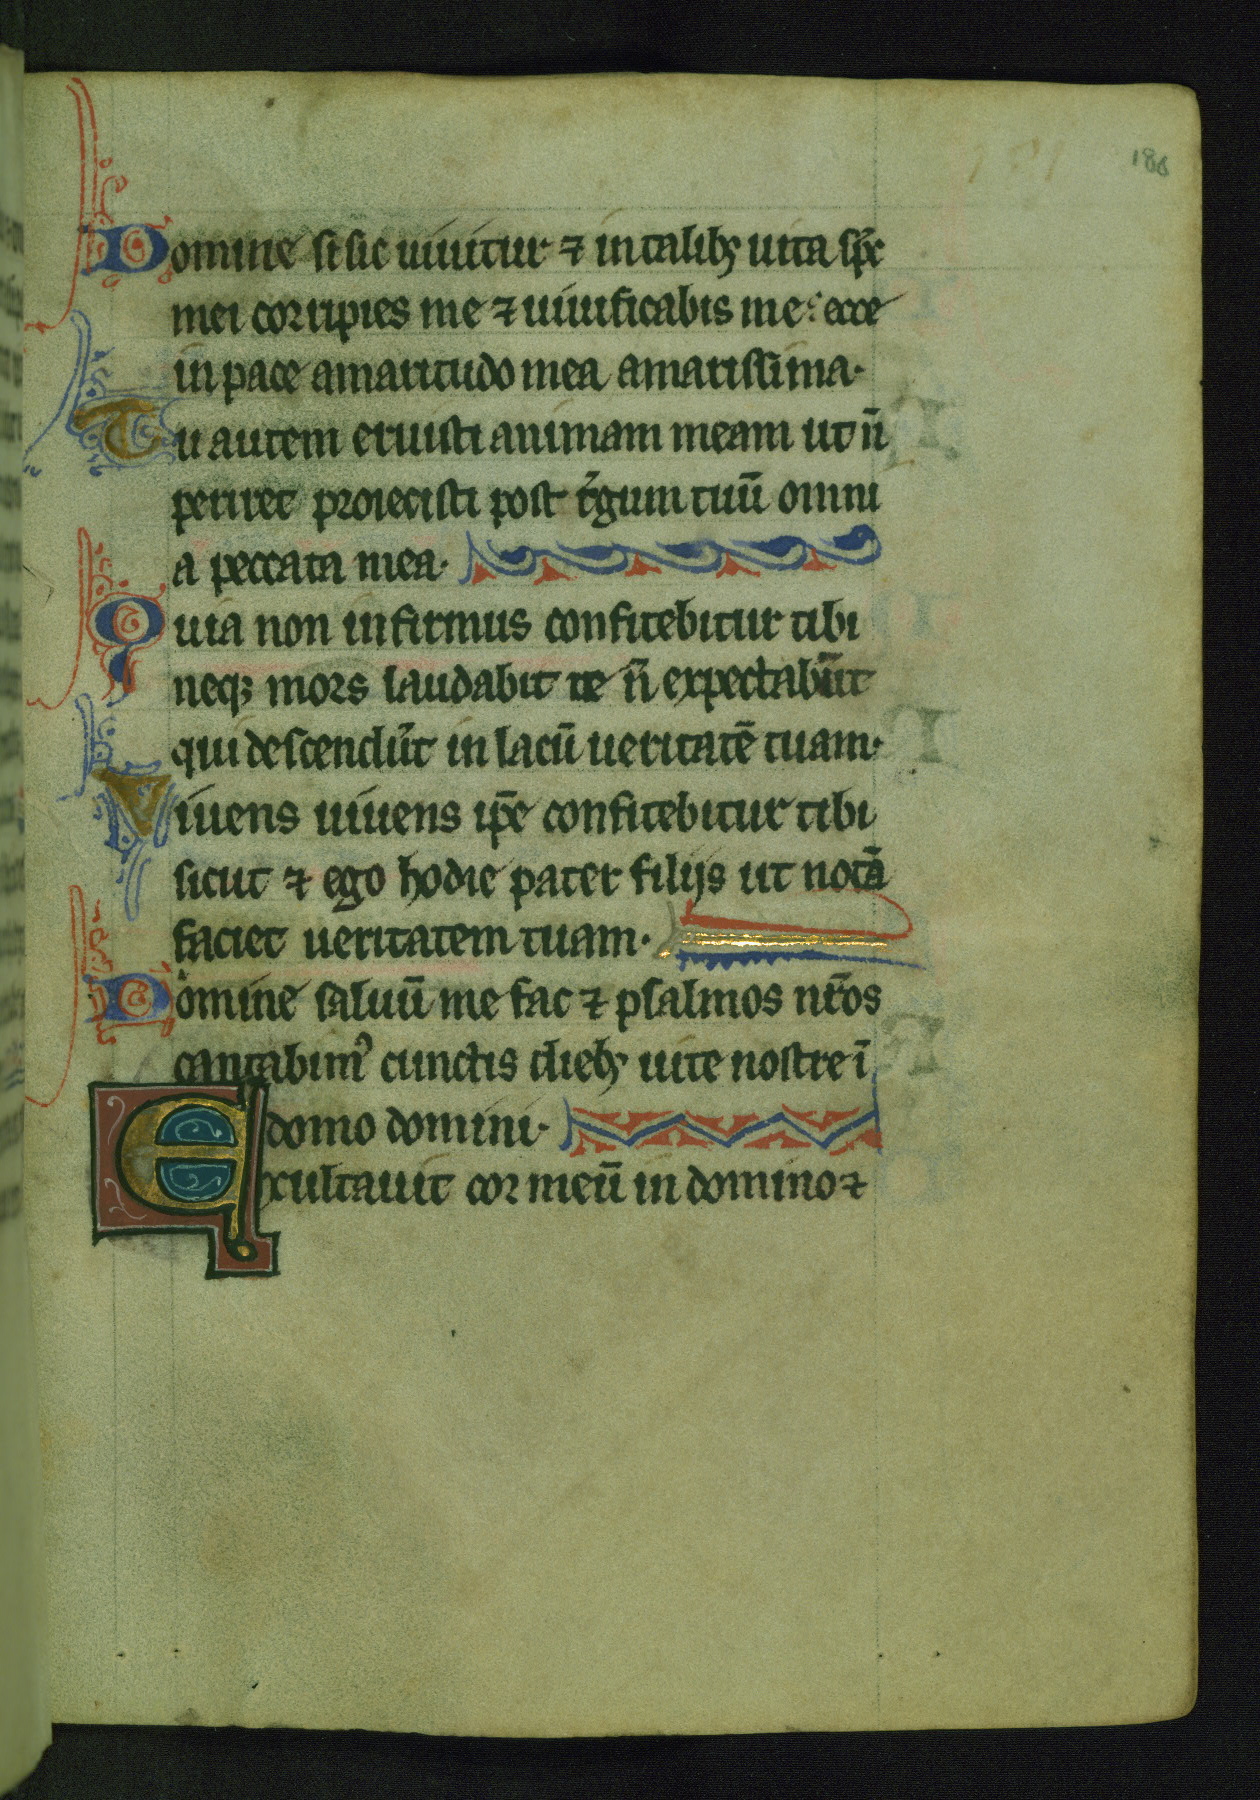 186
Domine si sic uiuitur ⁊ in talibꝫ uita sp̃c
mei corripies me ⁊ uiuificabis me: ecce
in pace amaritudo mea amarissima·
Tu autem eruisti animam meam ut ñ
periret proiecisti post t̃gum tuũ omni
a peccata mea·
Quia non infirmus confitebitur tibi
neqꝫ mors laudabit te ñ expectabũt
qui descendũt in lacũ ueritatẽ tuam·
Viuens uiuens ip̃e confitebitur tibi
sicut ⁊ ego hodie pater filijs ut notã
faciet ueritatem tuam·
Domine saluũ me fac ⁊ psalmos nr̃os
cantabimꝰ cunctis diebꝫ uite nostre ĩ
domo domini·
Exultauit cor meũ in domino ⁊